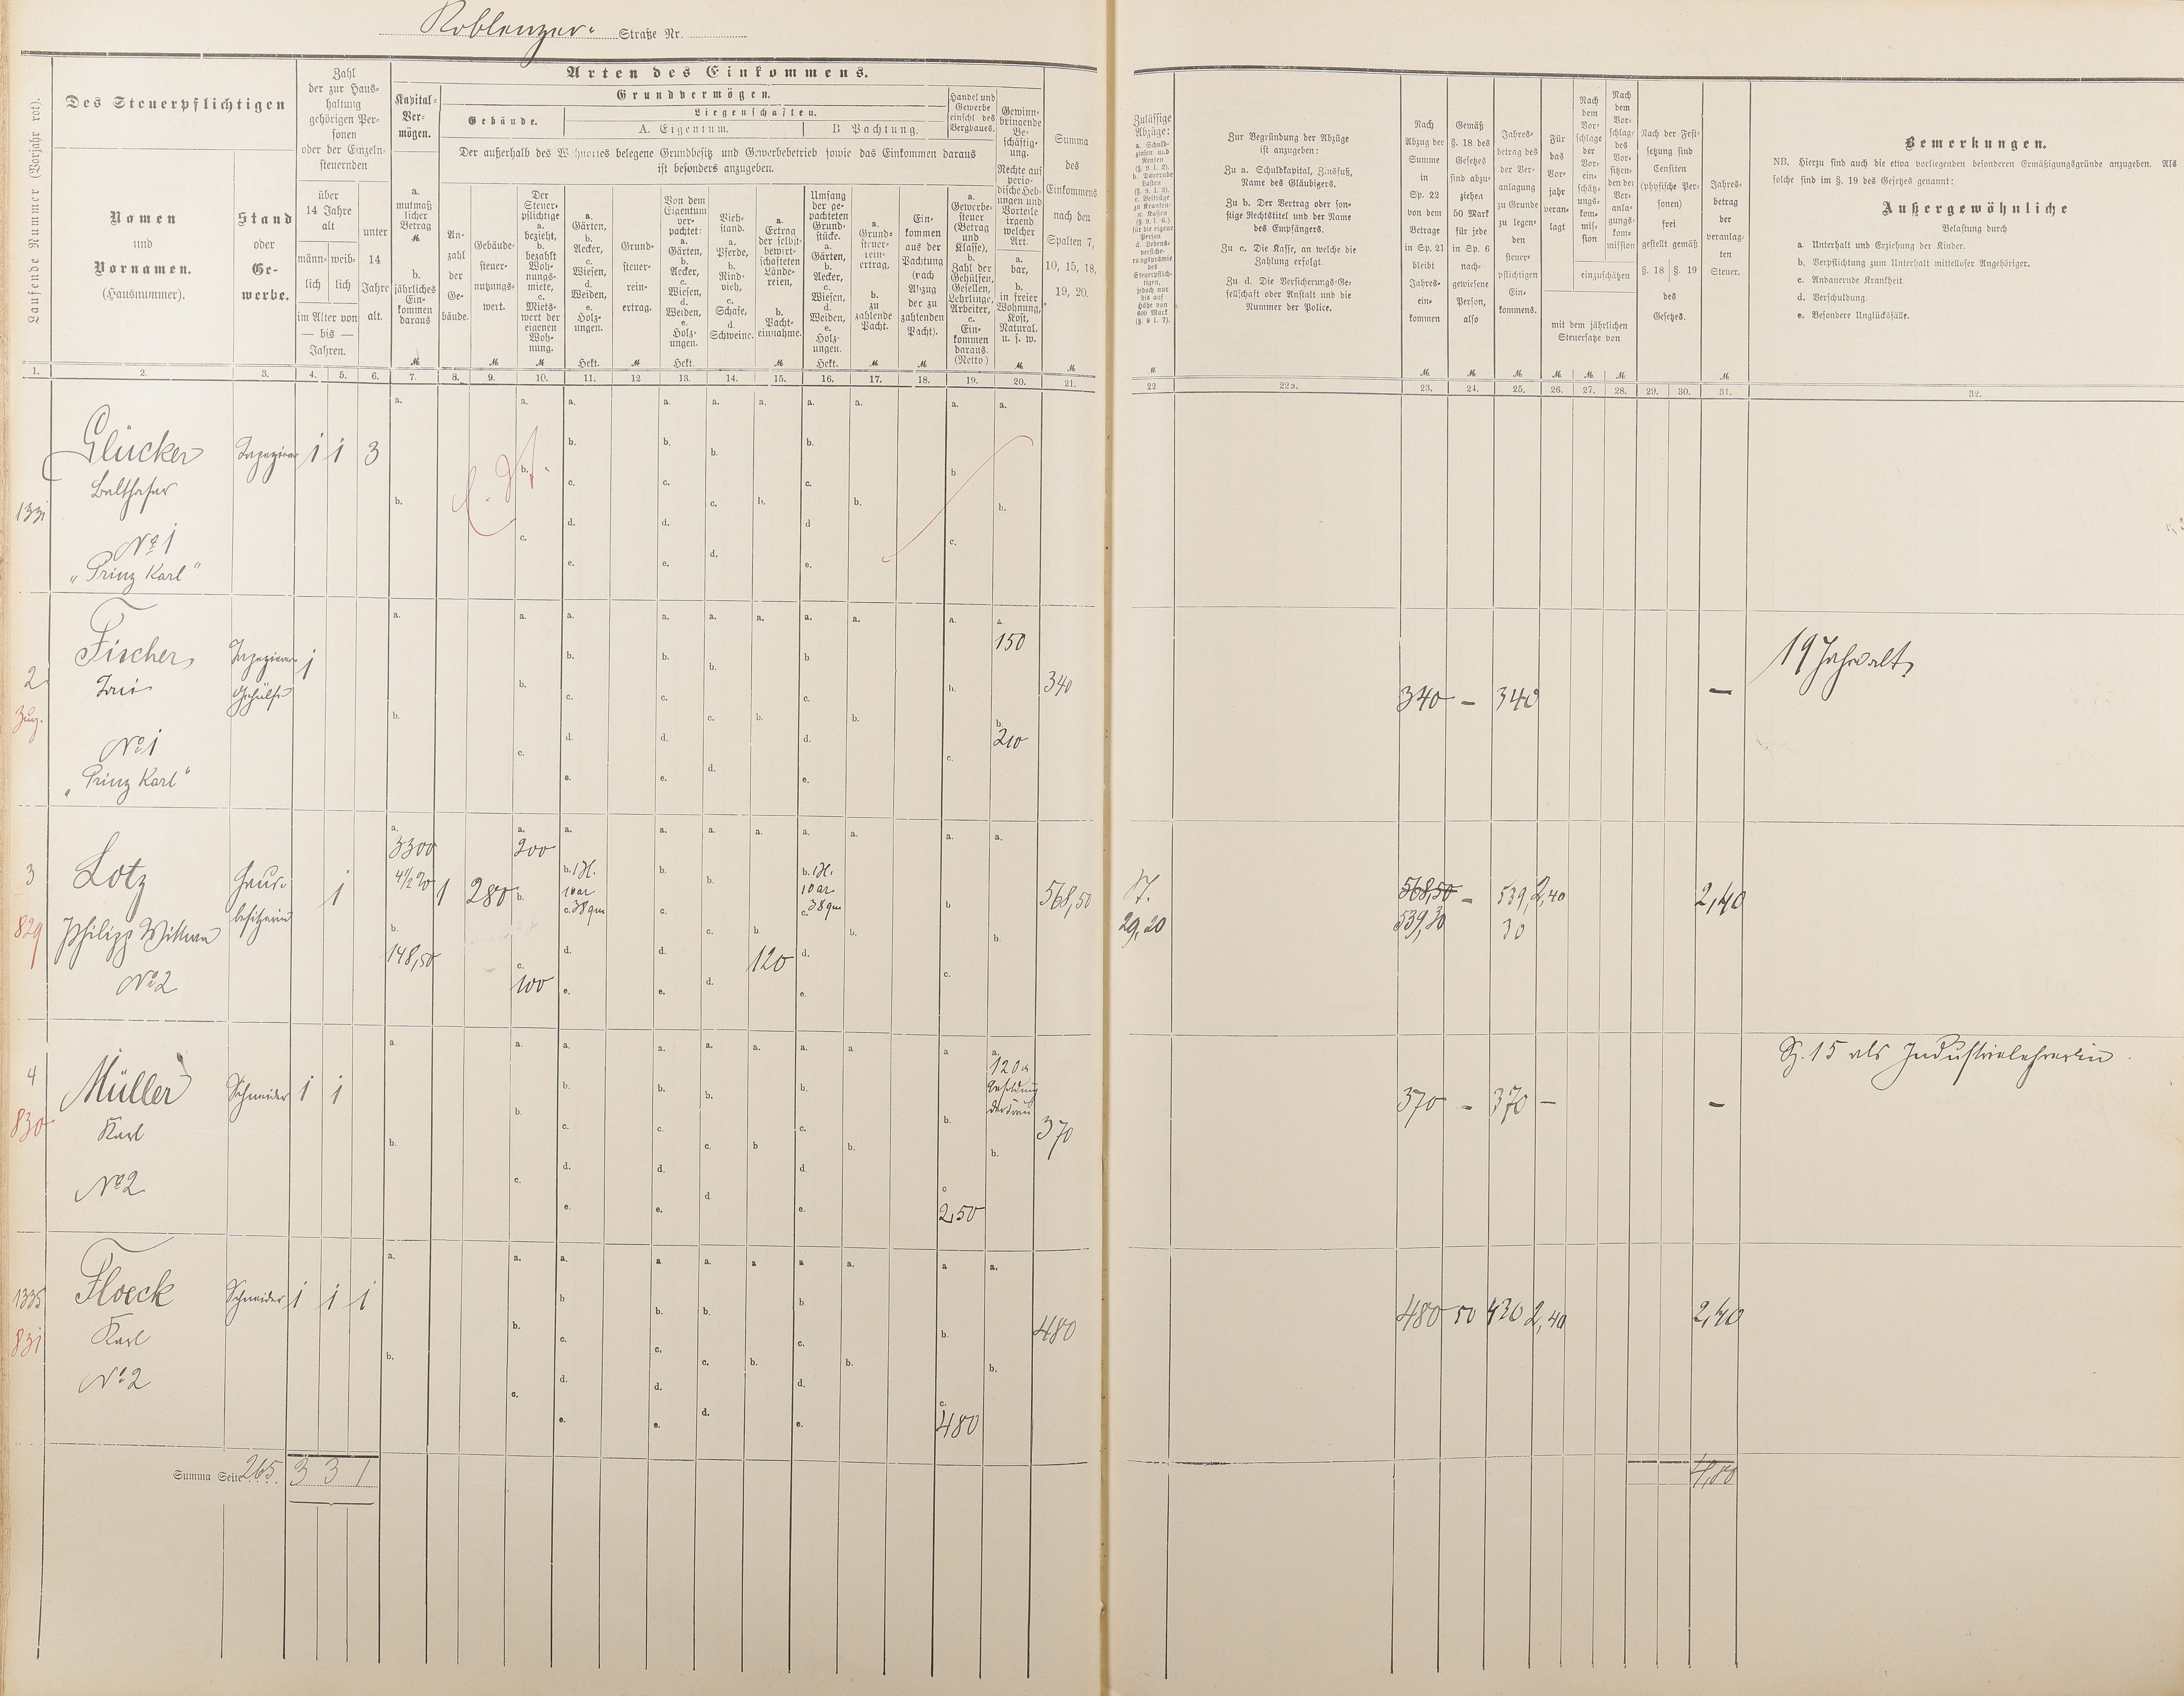 Koblenzer Straße Nr.
Laufende Nummer (Vorjahr rot).
Des Steuerpflichtigen
Namen
und
Vornamen.
(Hausnummer).
Stand
oder
Ge-
werbe.
Zahl
der zur Haus-
haltung
gehörigen Per-
sonen
oder der Einzeln-
steuernden
über
14 Jahre
alt
männ- weib-
lich lich
im Alter von
— bis —
Jahren.
unter
14
Jahre
alt.
Arten des Einkommens.
Kapital-
Ver-
mögen.
Grundvermögen.
Gebäude.
Liegenschaften.
A. Eigentum.
B. Pachtung.
Der außerhalb des Wohnortes belegene Grundbesitz und Gewerbebetrieb sowie das Einkommen daraus
ist besonders anzugeben.
a.
mutmaß-
licher
Betrag
M
b.
jährliches
Ein-
kommen
daraus
M
An-
zahl
der
Ge-
bäude.
Gebäude-
steuer-
nutzungs-
wert.
M
Der
Steuer-
pflichtige
a.
bezieht,
b.
bezahlt
Woh-
nungs-
miete,
c.
Miets-
wert der
eigenen
Woh-
nung.
M
a.
Gärten,
b.
Aecker,
c.
Wiesen,
d.
Weiden,
e.
Holz-
ungen.
Hekt.
Grund-
steuer-
rein-
ertrag.
M
Von dem
Eigentum
ver-
pachtet:
a.
Gärten,
b.
Aecker,
c.
Wiesen,
d.
Weiden,
e.
Holz-
ungen.
Hekt.
Vieh-
stand.
a.
Pferde,
b.
Rind-
vieh,
c.
Schafe,
d.
Schweine.
a.
Ertrag
der selbst-
bewirt-
schafteten
Lände-
reien,
b.
Pacht-
einnahme.
M
Umfang
der ge-
pachteten
Grund-
stücke.
a.
Gärten,
b.
Aecker,
c.
Wiesen,
d.
Weiden,
e.
Holz-
ungen.
Hekt.
a.
Grund-
steuer-
rein-
ertrag,
b.
zu
zahlende
Pacht.
M
Ein-
kommen
aus der
Pachtung
(nach
Abzug
der zu
zahlenden
Pacht).
M
Handel und
Gewerbe
einschl. des
Bergbaues.
a.
Gewerbe-
steuer
(Betrag
und
Klasse),
b.
Zahl der
Gehülfen,
Gesellen,
Lehrlinge,
Arbeiter,
c.
Ein-
kommen
daraus.
(Netto)
Gewinn-
bringende
Be-
schäftig-
ung.
Rechte auf
perio-
dische Heb-
ungen und
Vorteile
irgend
welcher
Art.
a.
bar,
b.
in freier
Wohnung,
Kost,
Natural.
u. s. w.
M
Summa
des
Einkommens
nach den
Spalten 7,
10, 15, 18,
19, 20.
M
Zulässige
Abzüge:
a. Schuld-
zinsen und
Renten
(§. 9. I. 2).
b. Dauernde
Lasten
(§. 9. I. 3).
c. Beiträge
zu Kranken-
2c. Kassen
(§. 9. I. 6.)
für die eigene
Person
d. Lebens-
versiche-
rungsprämie
des
Steuerpflich-
tigen,
jedoch nur
bis auf
Höhe von
600 Mark
(§. 9 I. 7).
M
Zur Begründung der Abzüge
ist anzugeben:
Zu a. Schuldkapital, Zinsfuß,
Name des Gläubigers.
Zu b. Der Vertrag oder son-
stige Rechtstitel und der Name
des Empfängers.
Zu c. Die Kasse, an welche die
Zahlung erfolgt.
Zu d. Die Versicherungs-Ge-
sellschaft oder Anstalt und die
Nummer der Police.
Nach
Abzug der
Summe
in
Sp. 22
von dem
Betrage
in Sp. 21
bleibt
Jahres-
ein-
kommen
M
Gemäß
§. 18 des
Gesetzes
sind abzu-
ziehen
50 Mark
für jede
in Sp. 6
nach-
gewiesene
Person,
also
M
Jahres-
betrag des
der Ver-
anlagung
zu Grunde
zu legen-
den
steuer-
pflichtigen
Ein-
kommens.
M
Für
das
Vor-
jahr
veran-
lagt
Nach
dem
Vor-
schlage
der
Vor-
ein-
schätz-
ungs-
kom-
mis-
sion
Nach
dem
Vor-
schlag
des
Vor-
sitzen-
den der
Ver-
anla-
gungs-
kom-
mission
einzuschätzen
mit dem jährlichen
Steuersatze von
M M M
Nach der Fest-
setzung sind
Censiten
(physische Per-
sonen)
frei
gestellt gemäß
§. 18 §. 19
des
Gesetzes.
Jahres-
betrag
der
veranlag-
ten
Steuer.
M
Bemerkungen.
NB. Hierzu sind auch die etwa vorliegenden besonderen Ermäßigungsgründe anzugeben. Als
solche sind im §. 19 des Gesetzes genannt:
Außergewöhnliche
Belastung durch
a. Unterhalt und Erziehung der Kinder.
b. Verpflichtung zum Unterhalt mittelloser Angehöriger.
c. Andauernde Krankheit.
d. Verschuldung.
e. Besondere Unglücksfälle.
1. 2. 3. 4. 5. 6. 7. 8. 9. 10. 11. 12 13. 14. 15. 16. 17. 18. 19. 20. 21. 22 22a. 23. 24. 25. 26. 27. 28. 29. 30. 31. 32.
Glücker Tapezierer 1 1 3
Balthasar
1331
No 1
"Prinz Karl"
Fischer, Tapezierer 1
Gehülfe
2
Zug.
No 1
"Prinz Karl"
150
210
340
340 – 340 –
19 Jahre alt,
3
829
Lotz
Philipp Wittwe
No 2
Haus-
besitzerin
1
3300
4 1/2 %
148,50
1 280
200
100
b. 1 H.
10 ar
c. 38 qm
120
b. 1 H.
10 ar
c. 38 qm
568,50
29,20
568,50 – 539, 2,40
539,30
30
2,40
4
830
Müller
Karl
No 2
Schneider 1 1
120
Besoldung
der Frau
250
370
370 – 370 – –
Sp. 15 als Industrielehrerin.
1335
831
Floeck
Karl
No 2
Schneider 1 1 1
480
480
480 50 430 2,40 2,40
Summa Seite 265. 3 3 1
4,80